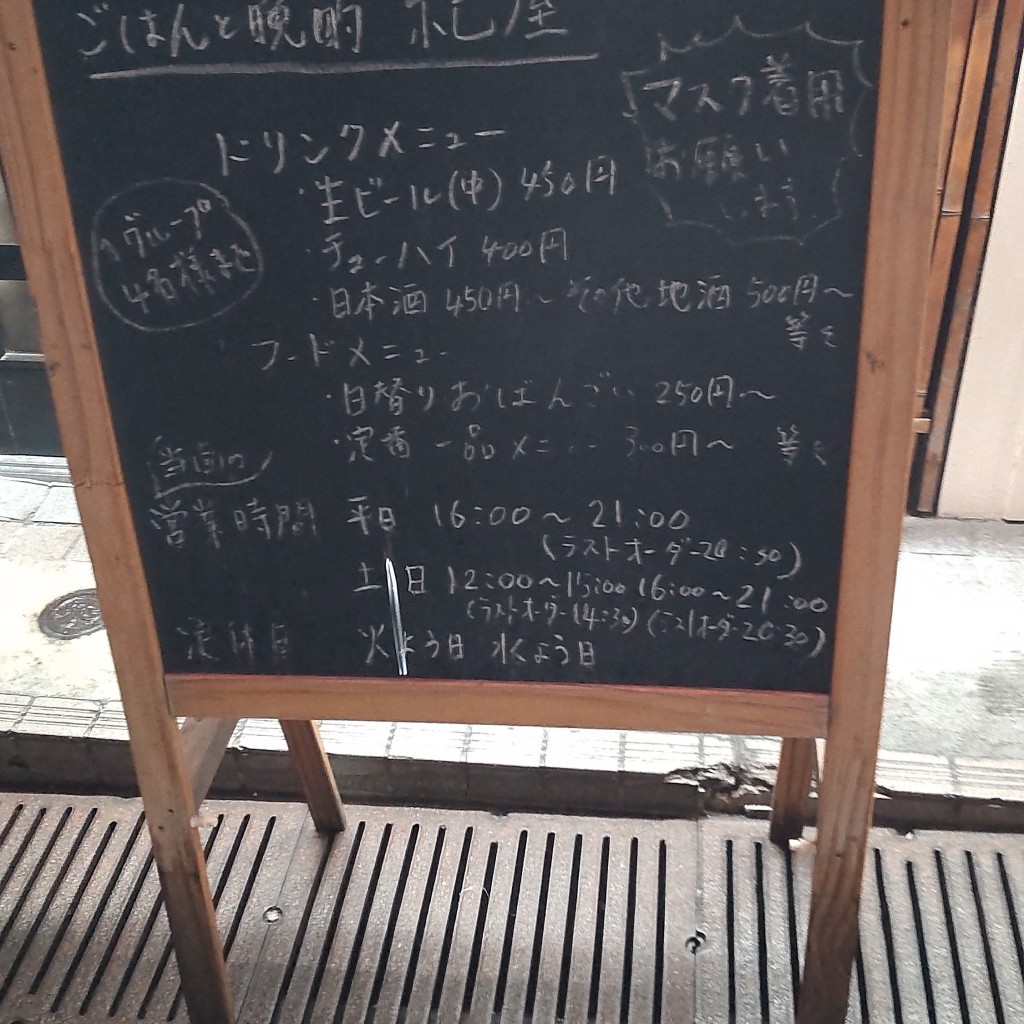 ごはんと晩酌 梲屋
マスク着用
お願い
します
ドリンクメニュー
・生ビール(中) 450円
・チューハイ 400円
・日本酒 450円～ その他 地酒 500円～
等々
1グループ
4名様まで
フードメニュー
・日替り おばんざい 250円～
・定番 一品メニュー 300円～ 等々
当面の
営業時間 平日 16:00～21:00
(ラストオーダー20:30)
土 日 12:00～15:00 16:00～21:00
(ラストオーダー14:30) (ラストオーダー20:30)
定休日 火よう日 水よう日